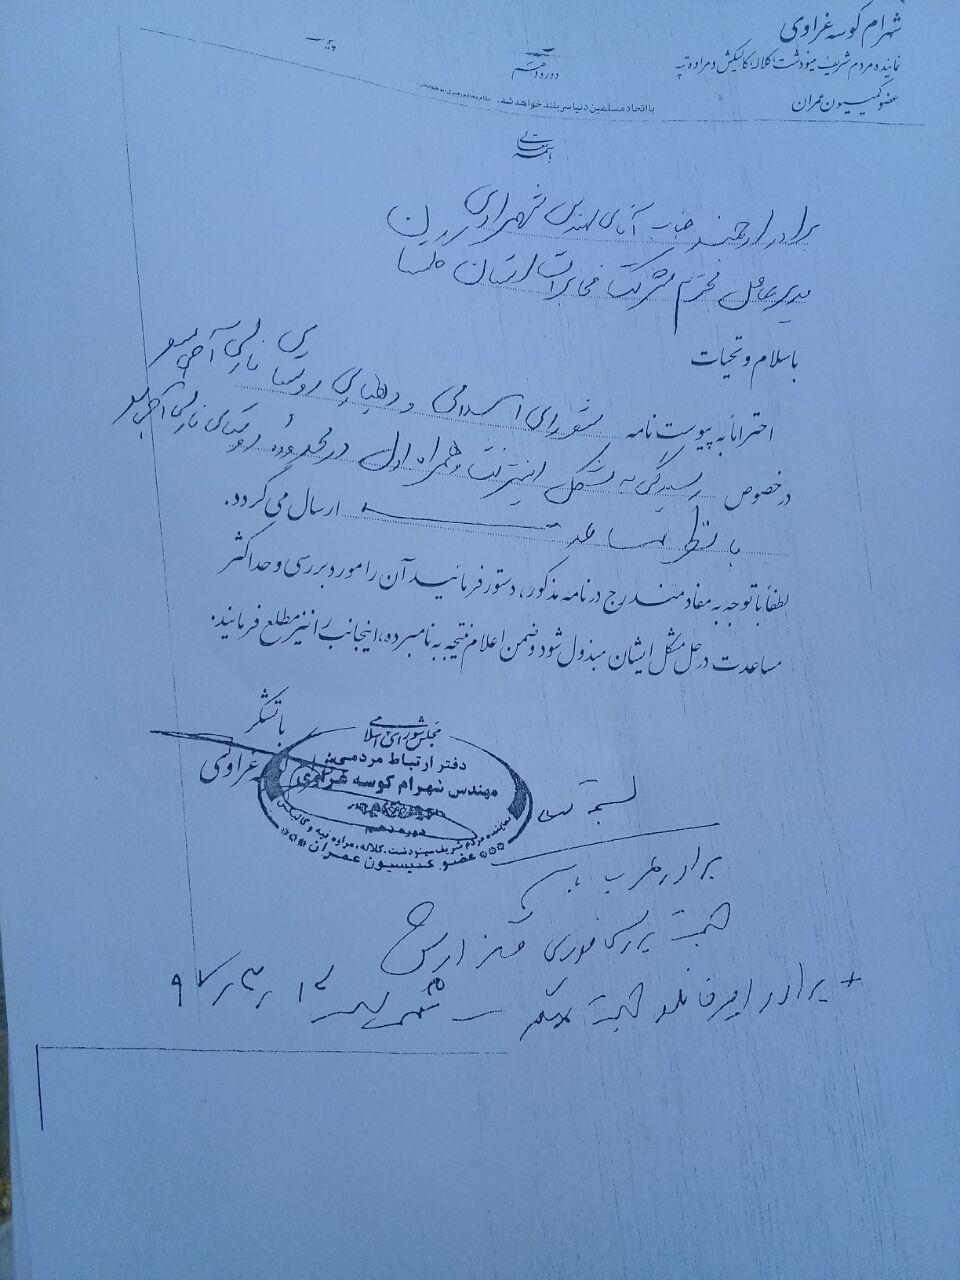 شهرام کوسه غراوی
نماینده مردم شریف مینودشت، کلاله، گالیکش و مراوه تپه
عضو کمیسیون عمران
دوره دهم
با اتحاد مسلمین دنیا سربلند خواهد شد.
باسمه تعالی
برادر ارجمند جناب آقای مهندس شهرادی
مدیر عامل محترم شرکت مخابرات استان گلستان
با سلام و تحیات
احتراماً به پیوست نامه شورای اسلامی و دهیاری روستای نارلی آجی سو
در خصوص رسیدگی به مشکل اینترنت همراه اول در محدوده روستای نارلی آجی سو
با نظر مساعد ارسال می گردد.
لطفاً با توجه به مفاد مندرج در نامه مذکور، دستور فرمائید آن را مورد بررسی و حداکثر
مساعدت در حل مشکل ایشان مبذول شود و ضمن اعلام نتیجه به نامبرده، اینجانب را نیز مطلع فرمائید.
با تشکر
غراوی
مجلس شورای اسلامی
دفتر ارتباط مردمی
مهندس شهرام کوسه غراوی
دوره دهم
نماینده مردم شریف مینودشت، کلاله، مراوه تپه و گالیکش
عضو کمیسیون عمران
برادر
جهت بررسی فوری و گزارش
+ برادر جهت
۹۷/۳/۱۲